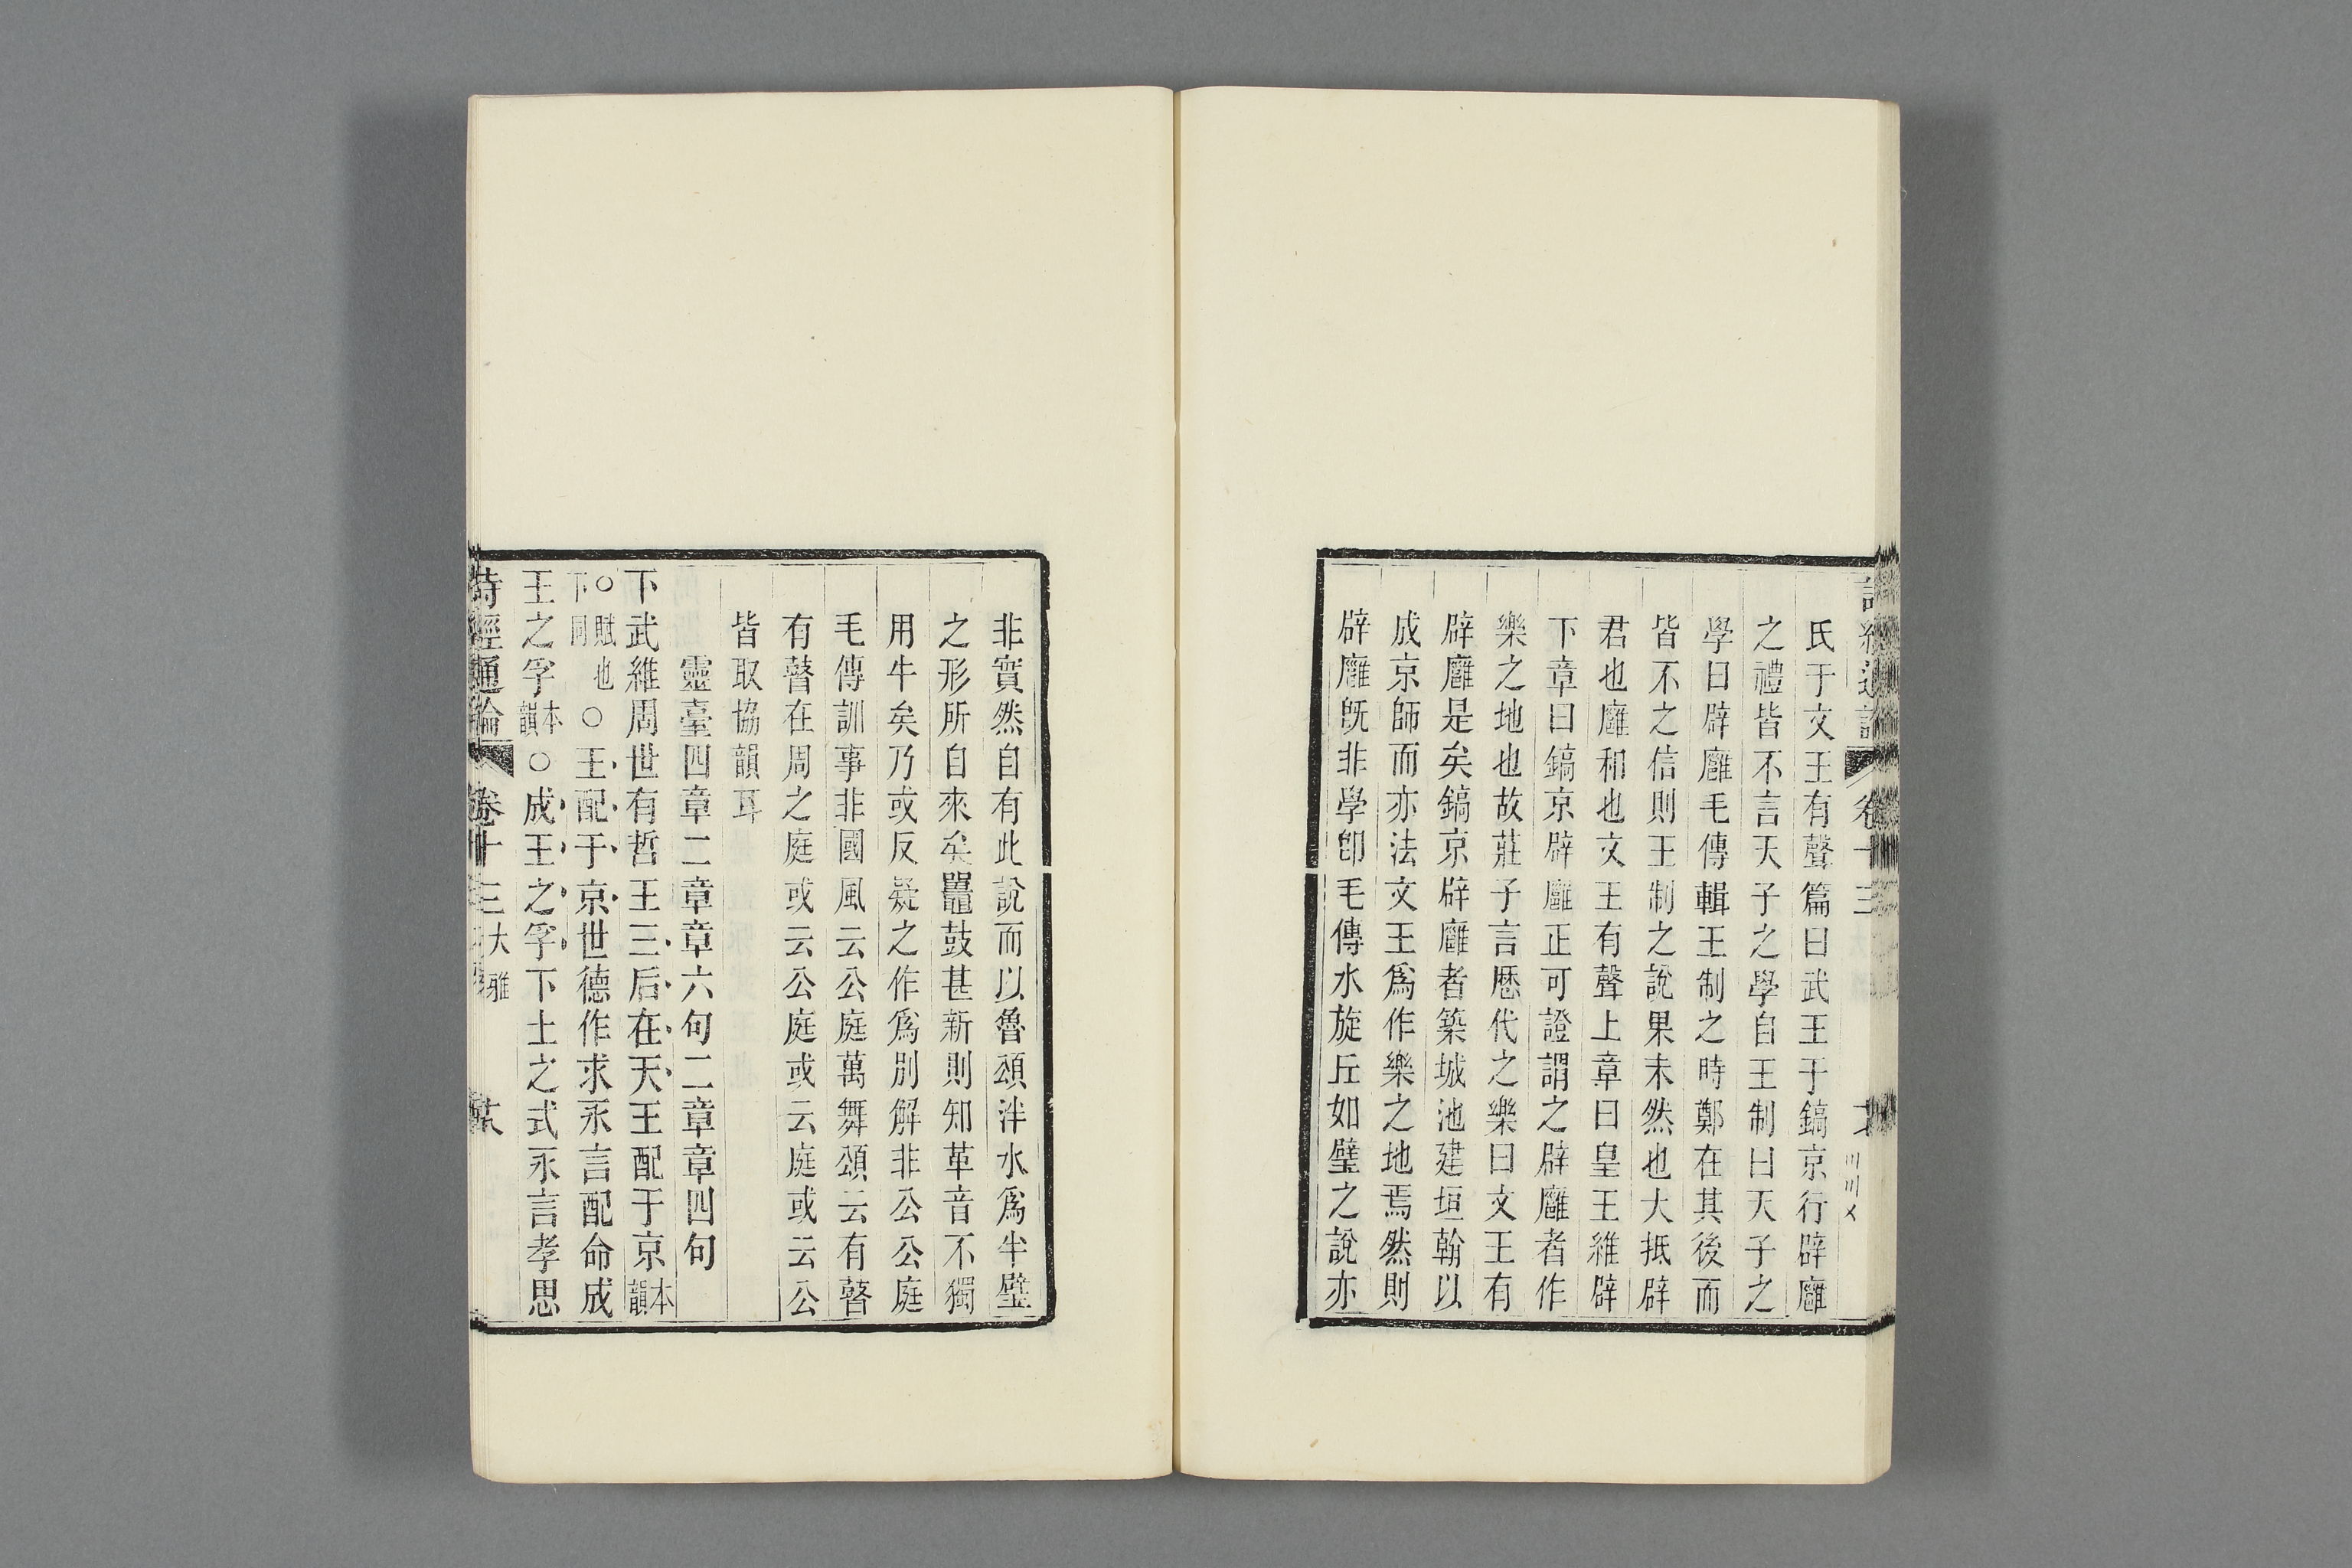 氏于文王有聲篇曰武王于鎬京行辟廱
之禮皆不言天子之學自王制曰天子之
學曰辟廱毛傳輯王制之時鄭在其後而
皆不之信則王制之說果未然也大抵辟
君也廱和也文王有聲上章曰皇王維辟
下章曰鎬京辟廱正可證謂之辟廱者作
樂之地也故莊子言歷代之樂曰文王有
辟廱是矣鎬京辟廱者築城池建垣翰以
成京師而亦法文王爲作樂之地焉然則
辟廱旣非學卽毛傳水旋丘如璧之說亦
非實然自有此說而以魯頌泮水爲半璧
之形所自來矣鼉鼓甚新則知革音不獨
用牛矣乃或反疑之作爲別解非公公庭
毛傳訓事非國風云公庭萬舞頌云有瞽
有瞽在周之庭或云公庭或云庭或云公
皆取協韻耳
靈臺四章二章章六句二章章四句
下武維周世有哲王三后在天王配于京本韻
○賦也下同○王配于京世德作求永言配命成
王之孚本韻○成王之孚下土之式永言孝思
詩經通論 卷十三 大雅